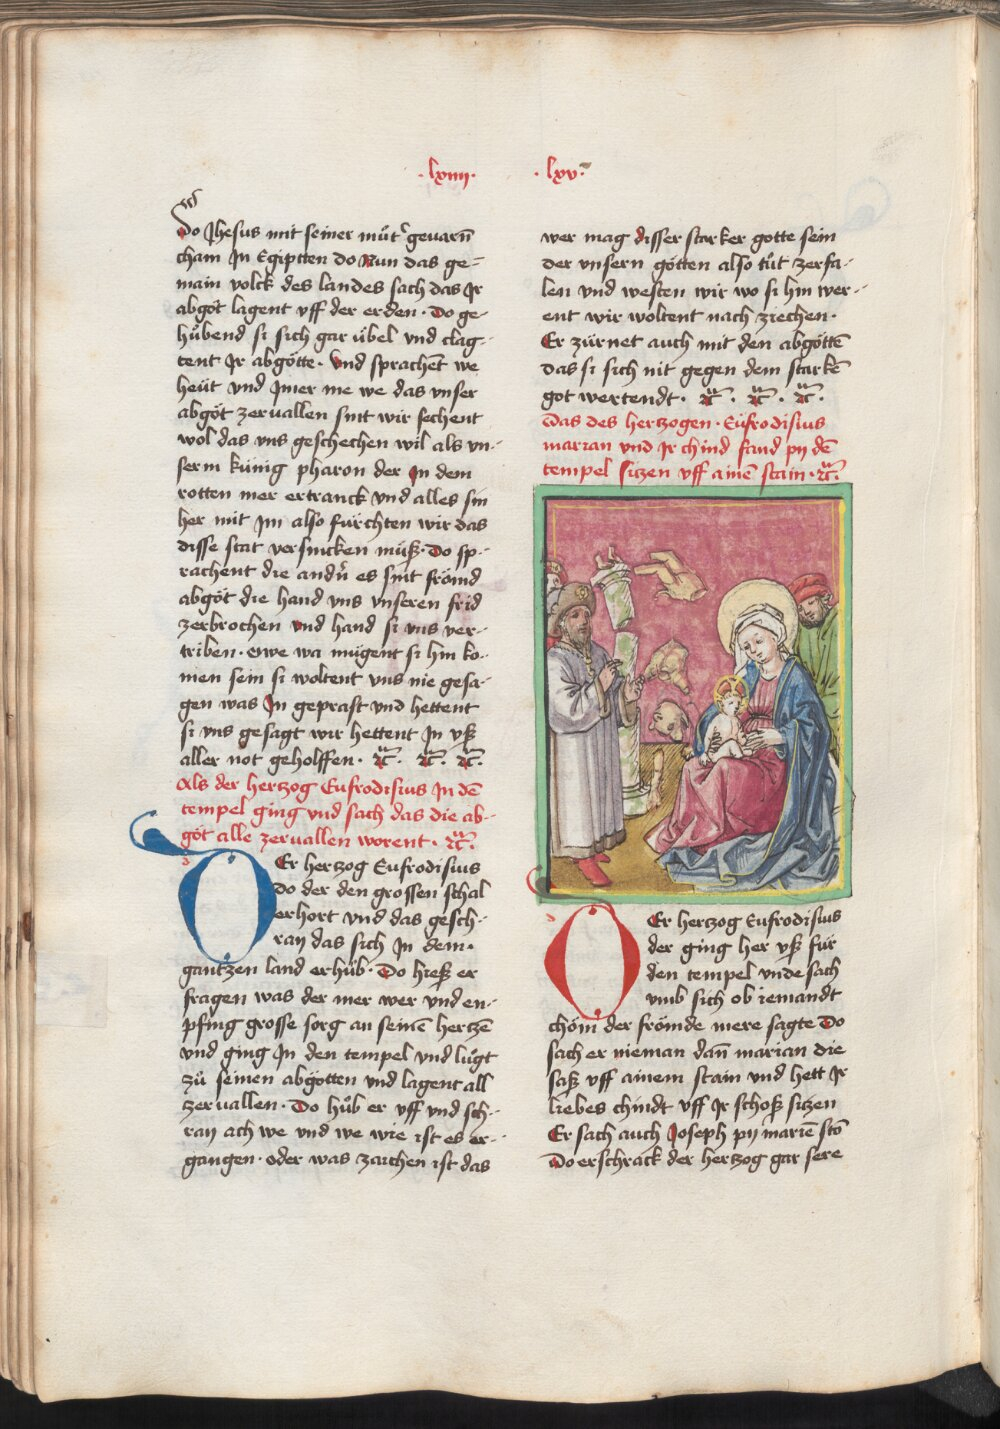 ·lxiiii·
·lxv·
Do Jhesus mit seiner můt' gevarn̄
cham Jn Egiptten do Nun das ge=
main volck des landes sach das Jr
abgöt lagent vff der erden · Do ge-
hůbend si sich gar übel vnd clag-
tent Jr abgötte · vnd sprachēt we
heüt vnd Jmer me we das vnser
abgöt zervallen sint wir sechent
wol das vns geschechen wil als vn-
serm künig pharon der Jn dem
rotten mer ertranck vnd alles sin
her mit Jm also fürchten wir das
disse stat versincken müß · Do sp-
rachent die andn̄ es sint frömd
abgöt die hand vns vnseren frid
zerbrochen vnd hand si vns ver-
triben · owe wa mügent si hin ko-
men sein si woltent vns nie gesa-
gen was Jn geprast vnd hettent
si vns gesagt wir hettent Jn vß
aller not geholffen · ꝛc · ꝛc · ꝛc ·
Als der hertzog Eufrodisius Jn dē
tempel ging vnd sach das die ab-
göt alle zervallen worent · ꝛc ·
DEr hertzog Eufrodisius
do der den grossen schal
erhort vnd das gesch-
ray das sich Jn dem ·
gantzen land erhůb · Do hieß er
fragen was der mer wer vnd en-
pfing grosse sorg an seinē hertzē
vnd ging Jn den tempel vnd lůgt
zů seinen abgötten vnd lagent all
zervallen · Do hůb er vff vnd sch-
ray ach we vnd we wie ist es er-
gangen · oder was zaichen ist das
wer mag disser starker gotte sein
der vnsern götten also tůt zerfa-
len vnd westen wir wo si hin wer-
ent wir woltent nach ziechen ·
Er zürnet auch mit den abgöttē
das si sich nit gegen dem starkē
got wertendt · ꝛc · ꝛc · ꝛc ·
Das des hertzogen · Eufrodisius
marian vnd Jr chind fand py dē
tempel sitzen vff ainē stain · ꝛc ·
DEr hertzog Eufrodisius
der ging her vß für
den tempel vnde sach
vmb sich ob iemandt
chöm der frömde mere sagte Do
sach er nieman dan̄ marian die
saß vff ainem stain vnd hett Jr
liebes chindt vff Jr schoß sitzen
Er sach auch Joseph py mariē stō
Do erschrack der hertzog gar sere